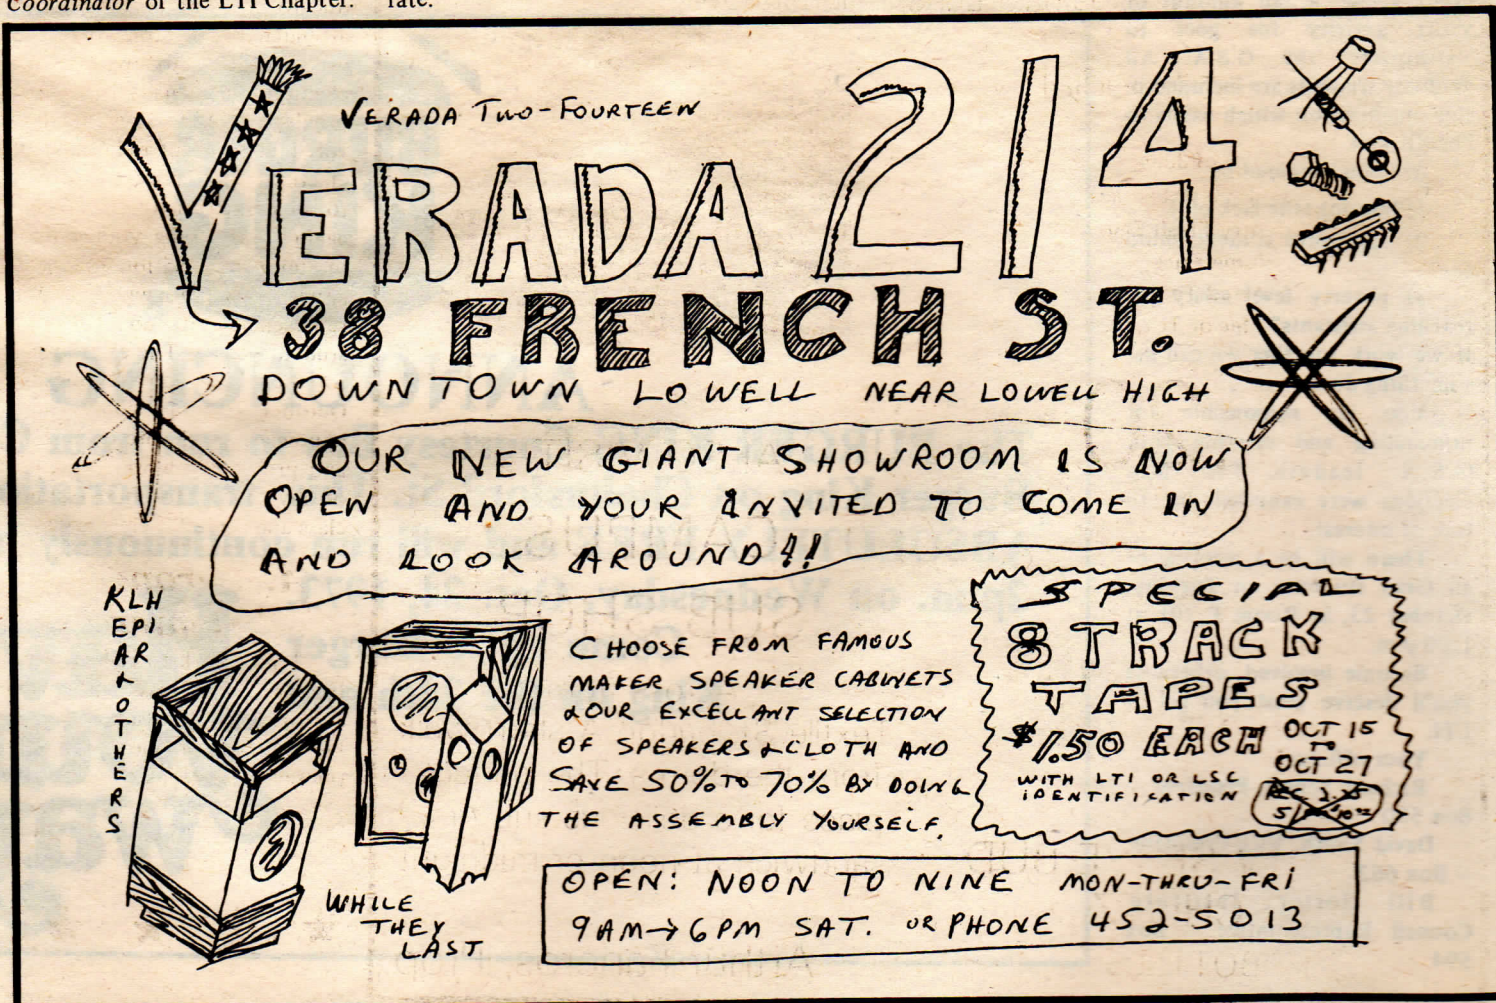 Coordinator of the LTI Chapter. rate.
VERADA TWO-FOURTEEN
VERADA 214
38 FRENCH ST.
DOWNTOWN LOWELL NEAR LOWELL HIGH
OUR NEW GIANT SHOWROOM IS NOW
OPEN AND YOUR INVITED TO COME IN
AND LOOK AROUND!!
KLH
EPI
AR
&
OTHERS
WHILE
THEY
LAST
CHOOSE FROM FAMOUS
MAKER SPEAKER CABINETS
& OUR EXCELLANT SELECTION
OF SPEAKERS & CLOTH AND
SAVE 50% TO 70% BY DOING
THE ASSEMBLY YOURSELF.
SPECIAL
8 TRACK
TAPES
$1.50 EACH
OCT 15
TO
OCT 27
WITH LTI OR LSC
IDENTIFICATION
REG. 2.25
OPEN: NOON TO NINE MON-THRU-FRI
9AM→6PM SAT. OR PHONE 452-5013